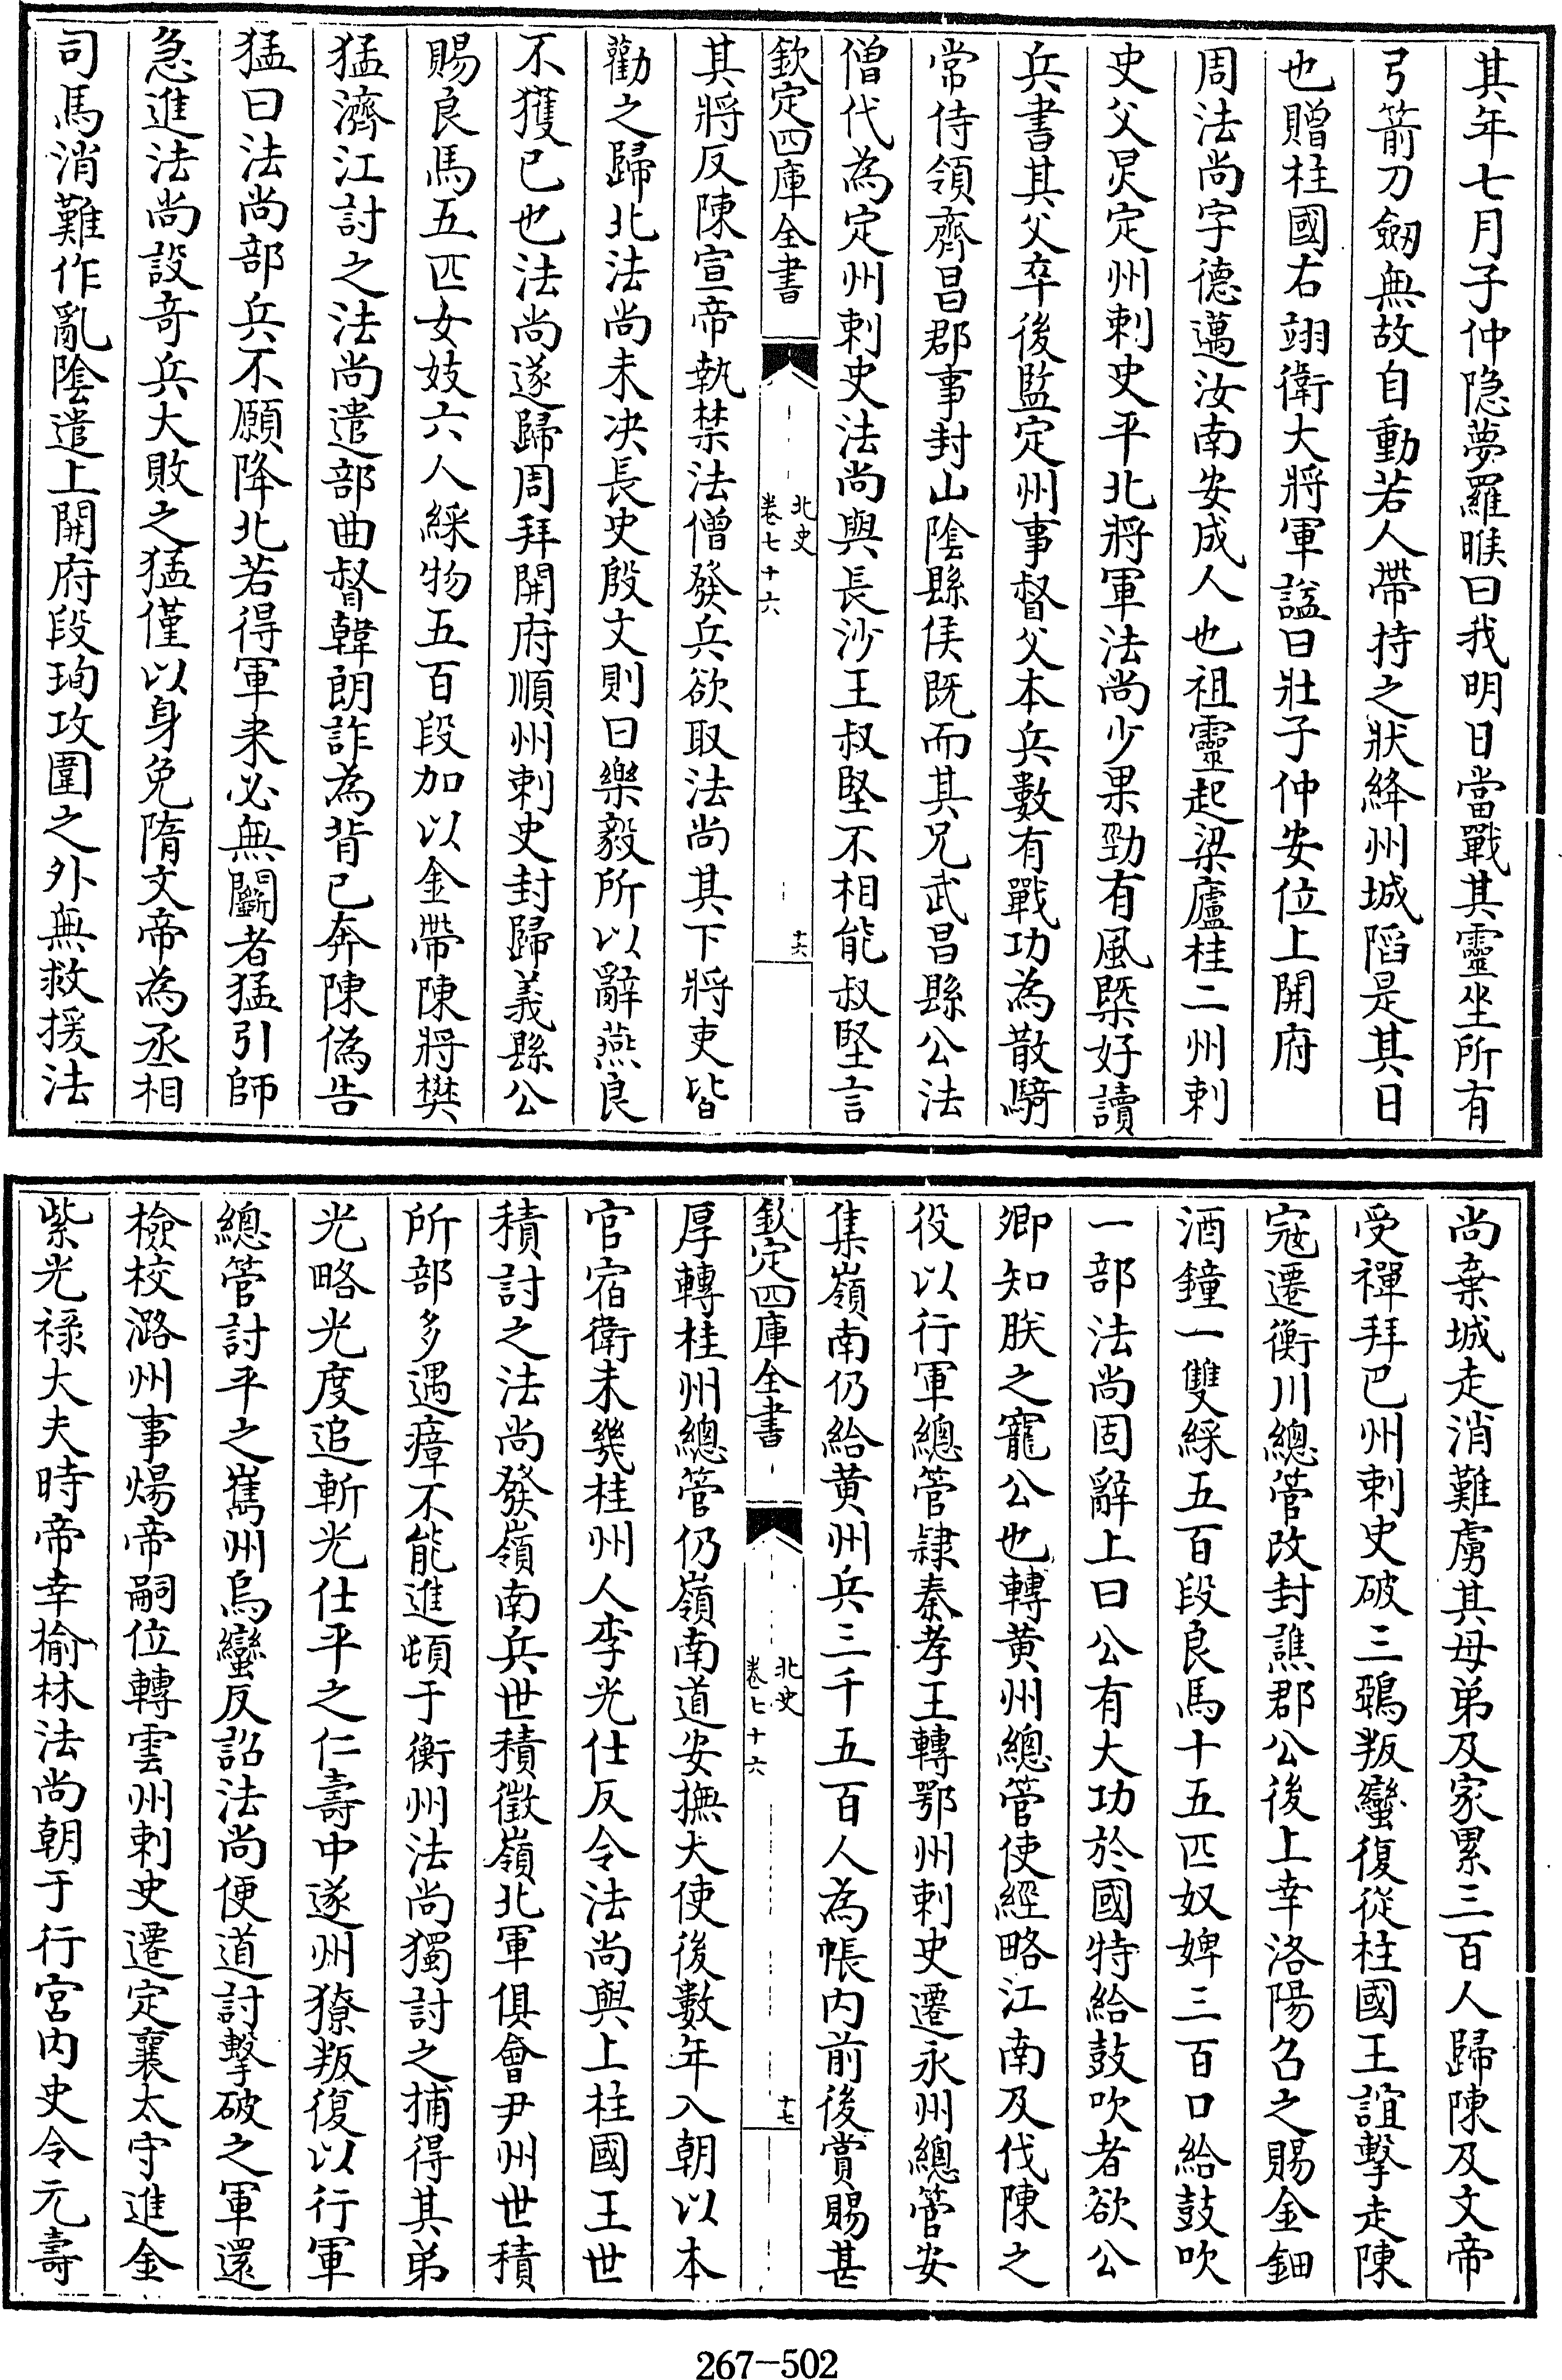 其年七月子仲隐夢羅㬋曰我明日當戰其靈坐所有
弓箭刀劔無故自動若人帶持之狀絳州城䧟是其日
也贈柱國右翊衛大將軍諡曰壯子仲安位上開府
周法尚字德邁汝南安成人也祖靈起梁廬桂二州刺
史父炅定州刺史平北將軍法尚少果勁有風槩好讀
兵書其父卒後監定州事督父本兵數有戰功為散騎
常侍領齊昌郡事封山隂縣侯既而其兄武昌縣公法
僧代為定州刺史法尚與長沙王叔堅不相能叔堅言
欽定四庫全書
北史
卷七十六
十六
其將反陳宣帝執禁法僧發兵欲取法尚其下將吏皆
勸之歸北法尚未決長史殷文則曰樂毅所以辭燕良
不獲已也法尚遂歸周拜開府順州刺史封歸義縣公
賜良馬五匹女妓六人綵物五百段加以金帶陳將樊
猛濟江討之法尚遣部曲督韓朗詐為背已奔陳偽告
猛曰法尚部兵不願降北若得軍來必無鬭者猛引師
急進法尚設奇兵大敗之猛僅以身免隋文帝為丞相
司馬消難作亂隂遣上開府段珣攻圍之外無救援法
尚棄城走消難虜其母弟及家累三百人歸陳及文帝
受禪拜巴州刺史破三鵶叛蠻復從柱國王誼擊走陳
寇遷衡川總管改封譙郡公後上幸洛陽召之賜金鈿
酒鐘一雙綵五百段良馬十五匹奴婢三百口給鼓吹
一部法尚固辭上曰公有大功於國特給鼓吹者欲公
卿知朕之寵公也轉黄州總管使經略江南及伐陳之
役以行軍總管隸秦孝王轉鄂州刺史遷永州總管安
集嶺南仍給黄州兵三千五百人為帳内前後賞賜甚
欽定四庫全書
北史
卷七十六
十七
厚轉桂州總管仍嶺南道安撫大使後數年入朝以本
官宿衛未㡬桂州人李光仕反令法尚與上柱國王世
積討之法尚發嶺南兵世積徵嶺北軍俱會尹州世積
所部多遇瘴不能進頓于衡州法尚獨討之捕得其弟
光略光度追斬光仕平之仁壽中遂州獠叛復以行軍
總管討平之嶲州烏蠻反詔法尚便道討擊破之軍還
檢校潞州事煬帝嗣位轉雲州刺史遷定襄太守進金
紫光禄大夫時帝幸榆林法尚朝于行宫内史令元壽
267-502